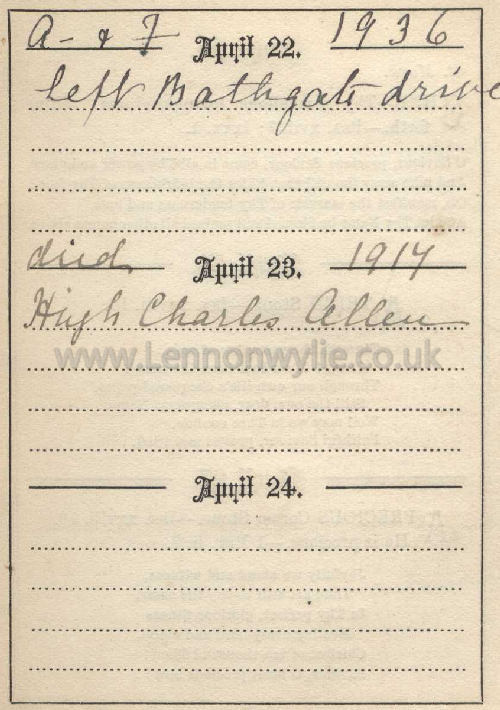 A- & F April 22. 1936
left Bathgate drive
died April 23. 1917
Hugh Charles Allen
www.Lennonwylie.co.uk
April 24.